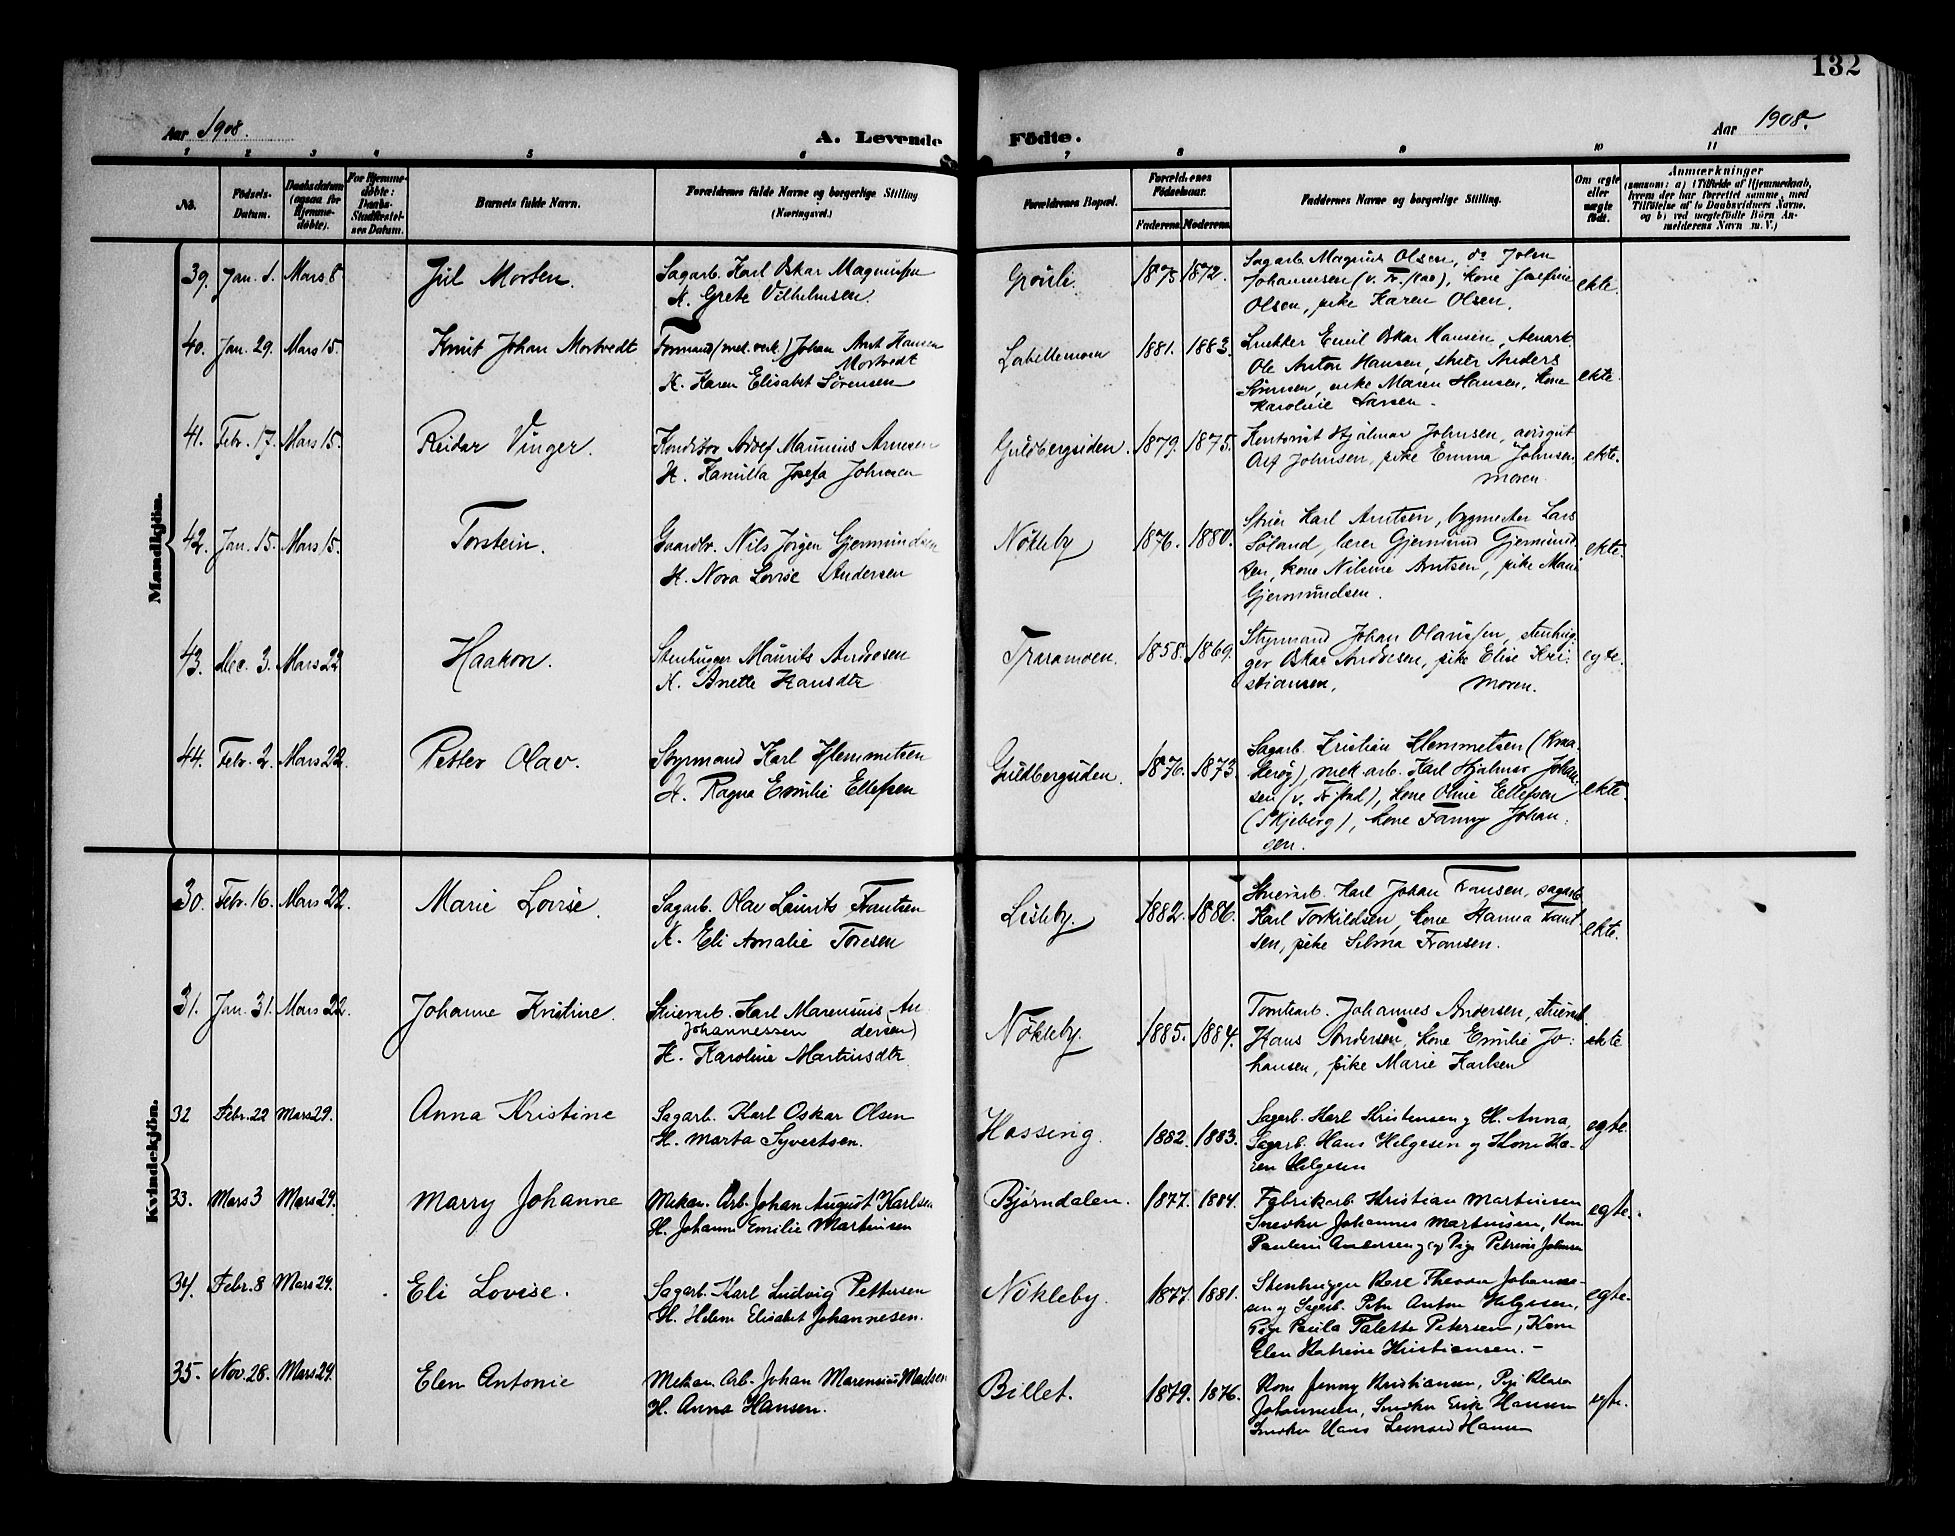 132
Aar 1908.
A. Levende
Födte.
Aar 1908.
1 2 3 4 5 6 7 8 9 10 11
No.
Födsels-
Datum.
Daabsdatum
(ogsaa for
Hjemme-
döbte).
For Hjemme-
döbte:
Daabs-
Stadfæstel-
ses Datum.
Barnets fulde Navn.
Forældrenes fulde Navne og borgerlige Stilling
(Næringsvei.)
Forældrenes Bopæl.
Forældrenes
Födselsaar.
Faderens. Moderens.
Faddernes Navne og borgerlige Stilling.
Om ægte
eller
uægte
født.
Anmærkninger
(saasom: a) i Tilfælde af Hjemmedaab,
hvem der har forrettet samme, med
Tilföielse af to Daabsvidners Navne,
og b) ved uægtefödte Börn An-
melderens Navn m. V.)
Mandkjön.
39. Jan. 1. Mars 8. Juel Morten.
Sagarb. Karl Oskar Magnussen
H. Grete Vilhelmsen.
Grönli. 1875 1872.
Sagarb. Magnus Olsen, do John
Johannesen (v. Fr.stad), kone Josefine
Olsen, pike Karen Olsen.
ekte.
40. Jan. 29. Mars 15. Knut Johan Mortvedt
Formand (mek. verk.) Johan Arnt Hansen
Mortvedt
H. Karen Elisabet Sørensen
Labillemoen 1881. 1883.
Snekker Emil Oskar Hansen,
Ole Anton Hansen, stuer Anders
Sørensen, enke Maren Hansen, kone
Karoline Larsen.
ekte.
41. Febr. 17. Mars 15. Reidar Vinger.
Konditor Adolf Maurius Arnesen
H. Kamilla Josefa Johnsen
Guldbergsiden. 1879. 1875.
Kontorist Hjalmar Johnsen, avisgut
Alf Johnsen, pike Emma Johnsen,
moren.
ekte.
42. Jan. 15. Mars 15. Torstein.
Gaardbr. Nils Jørgen Gjermundsen
H. Nora Lovise Andersen
Nökleby 1876. 1880.
Stuer Karl Arntsen, bygmester Lars
Søland, lærer Gjermund Gjermund-
sen, kone Nilsine Arntsen, pike Marie
Gjermundsen.
ekte.
43. Dec. 3. Mars 22 Haakon.
Stenhugger Maurits Andresen
H. Anette Hansdtr
Traramoen. 1858. 1869.
Styrmand Johan Olaussen, stenhug-
ger Oskar Andresen, pike Elise Kri-
stiansen, moren.
egte.
44. Febr. 2. Mars 22. Petter Olav.
Styrmand Karl Hlemmetsen
H. Ragna Emilie Ellefsen
Guldbergsiden. 1876. 1873.
Sagarb. Kristian Klemmetsen (Kraa-
kerøy), mek. arb. Karl Hjalmar Johan-
sen (v. Fr.stad), kone Oline Ellefsen
(Skjeberg), kone Fanny Johan-
sen.
ekte.
Kvindekjön.
30. Febr. 16. Mars 22. Marie Lovise.
Sagarb. Olav Laurits Frantsen
H. Eli Amalie Toresen
Lisleby. 1882. 1886.
Stuerarb. Karl Johan Fransen, sagarb.
Karl Torkildsen, kone Hanna Frant-
sen, pike Selma Fransen.
ekte.
31. Jan. 31. Mars 22. Johanne Kristine.
Stuerarb. Karl Marenius (An-
Johannessen dersen)
H. Karoline Martinsdtr
Nökleby. 1885. 1884.
Tomtearb. Johannes Andersen, stuerarb.
Hans Andersen, kone Emilie Jo-
hansen, pike Marie Karlsen
ekte
32 Febr. 22 Mars 29. Anna Kristine
Sagarb. Karl Oskar Olsen
H. Marta Syvertsen.
Hassing. 1882. 1883.
Sagarb. Karl Kristensen og H. Anna,
Sagarb. Hans Helgesen og Kone Ka-
ren Helgesen
egte.
33. Mars 3 Mars 29. Marry Johanne
Mekan. Arb. Johan August Karlsen
H. Johanne Emilie Martinsen
Bjørndalen. 1877. 1884.
Fabrikarb. Kristian Martinsen
Snedker Johannes Martinsen, Kone
Pauline Andersen og Pige Petrine Johnsen
egte.
34. Febr. 8 Mars 29. Eli Lovise.
Sagarb. Karl Ludvig Pettersen
H. Helene Elisabet Johannesen.
Nökleby. 1877. 1881.
Stenhugger Karl Theodor Johannes-
sen og Sagarb. Peter Anton Helgesen,
Pige Paula Talette Petersen, Kone
Elen Katrine Kristiansen.
egte.
35. Nov. 28. Mars 29. Elen Antonie
Mekan. Arb. Johan Marensius Madsen
H. Anna Hansen.
Billet. 1879. 1876.
Kone Jenny Kristiansen, Pige Klara
Johannesen, Snedker Erik Hansen
Snedker Hans Leonard Hansen
egte.